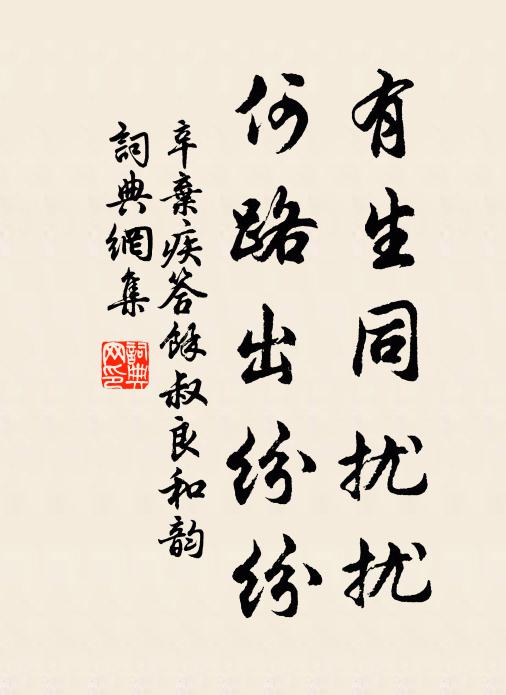 有生同扰扰
何路出纷纷
辛棄疾答餘叔良和韵
詞典網集
詞典网印